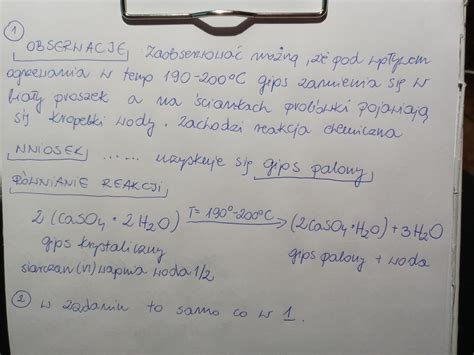 1
OBSERWACJE Zaobserwować można, że pod wpływem
ogrzewania w temp 190-200°C gips zamienia się w
biały proszek a na ściankach probówki pojawiają
się kropelki wody. Zachodzi reakcja chemiczna
WNIOSEK ...... uzyskuje się gips palony
RÓWNANIE REAKCJI
2(CaSO₄ · 2H₂O) T=190°-200°C → (2CaSO₄·H₂O) + 3H₂O
gips krystaliczny gips palony + woda
siarczan(VI) wapnia woda 1/2
2 w zadaniu to samo co w 1.